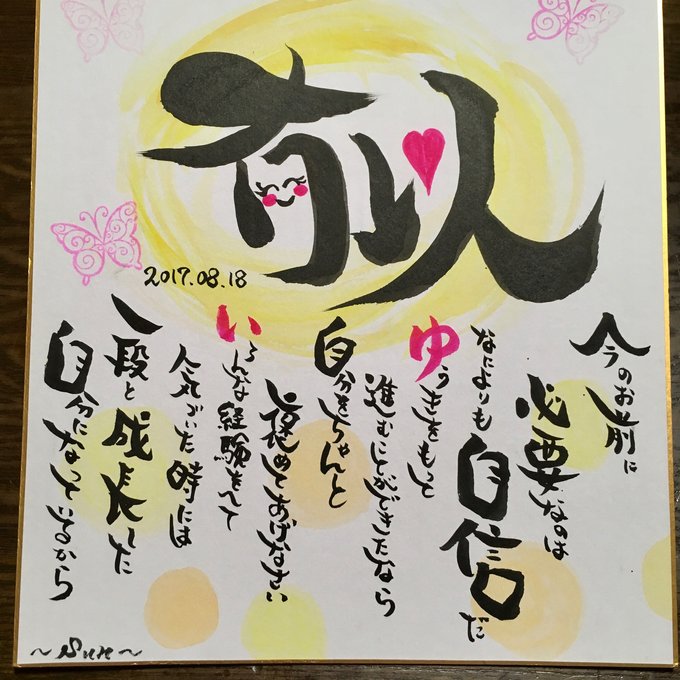 有以
2017.08.18
今のお前に
必要なのは
なによりも自信だ
ゆうきをもって
進むことができたなら
自分をちゃんと
褒めてあげなさい
いろんな経験をへて
気づいた時には
一段と成長した
自分になっているから